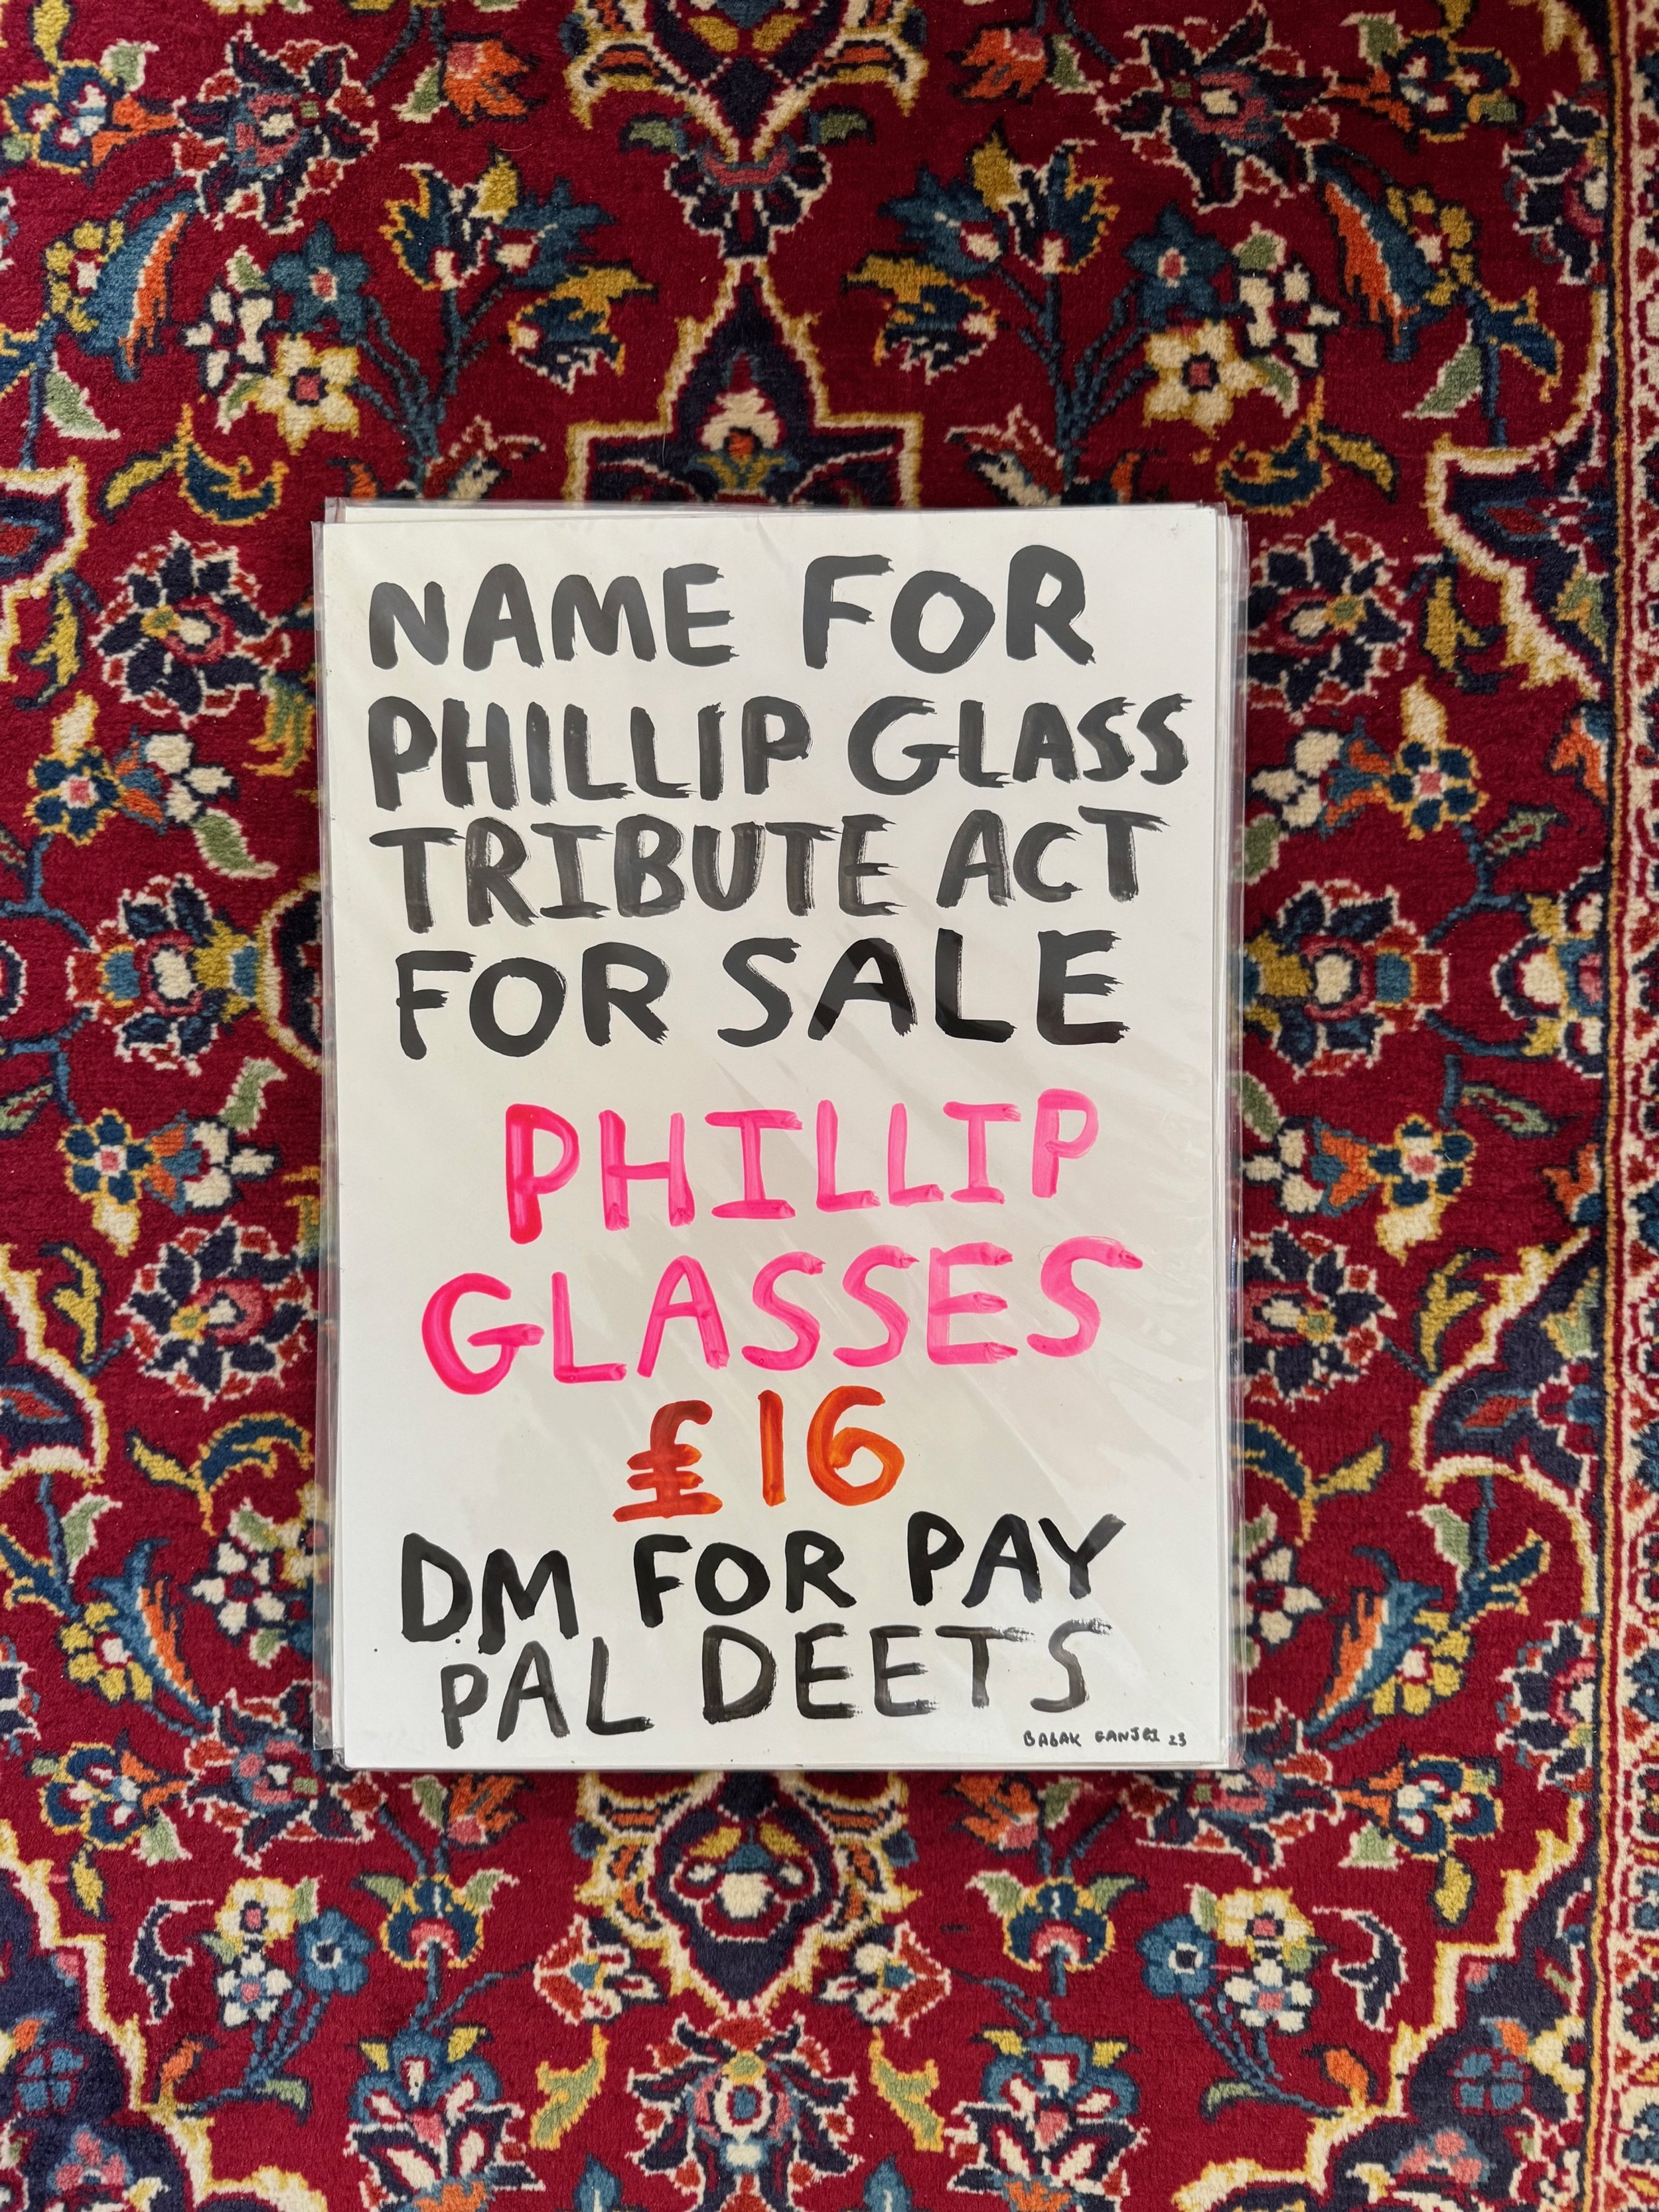 NAME FOR
PHILLIP GLASS
TRIBUTE ACT
FOR SALE
PHILLIP
GLASSES
£16
DM FOR PAY
PAL DEETS
BABAK GANJEI 23